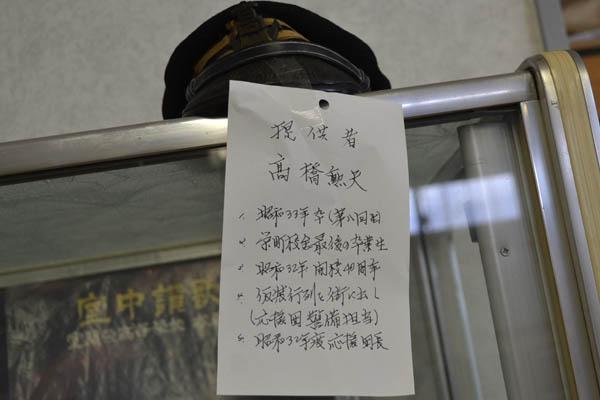 提供者
高橋勲夫
1. 昭和33年卒(第八回生)
2. 栄町校舎最後の卒業生
3. 昭和32年開校40周年
4. 仮装行列を街に出し
(応援団警備担当)
5. 昭和32年度応援団長
室中讃